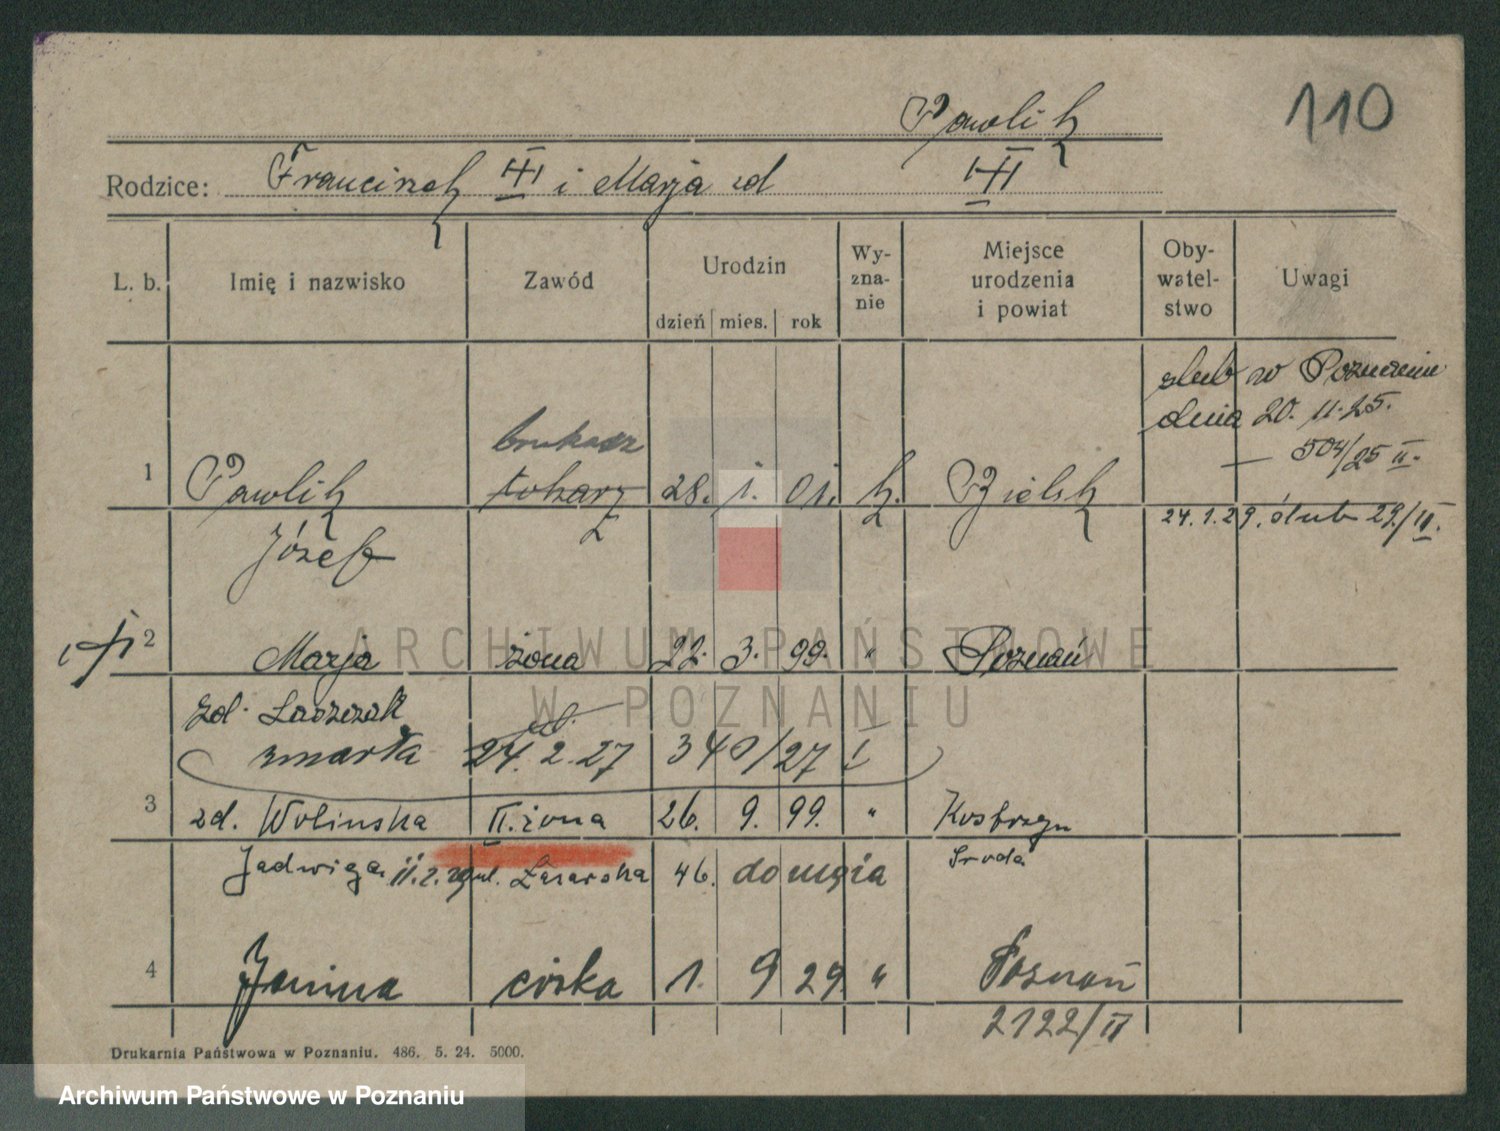 110
Pawlik
Rodzice: Franciszek III i Marja zd III
L. b. Imię i nazwisko Zawód Urodzin dzień mies. rok Wy-zna-nie Miejsce urodzenia i powiat Oby-watel-stwo Uwagi
ślub w Poznaniu
dnia 20. 11. 25.
— 504/25 II.
brukarz
1 Pawlik tokarz 28. 1. 01. k. Bielsk
24. 1. 29. ślub 29./II.
Józef
2 Marja żona 22. 3. 99. " Poznań
zd. Laszczak
zmarła 24. 2. 27 340/27 I
3 zd. Wolinska II. żona 26. 9. 99. " Kostrzyn
Jadwiga 11. 2. 29 ul. Łazarska 46. do męża Sroda
4 Janina córka 1. 9 29. " Poznań
2122/II
Drukarnia Państwowa w Poznaniu. 486. 5. 24. 5000.
ARCHIWUM PAŃSTWOWE
W POZNANIU
Archiwum Państwowe w Poznaniu